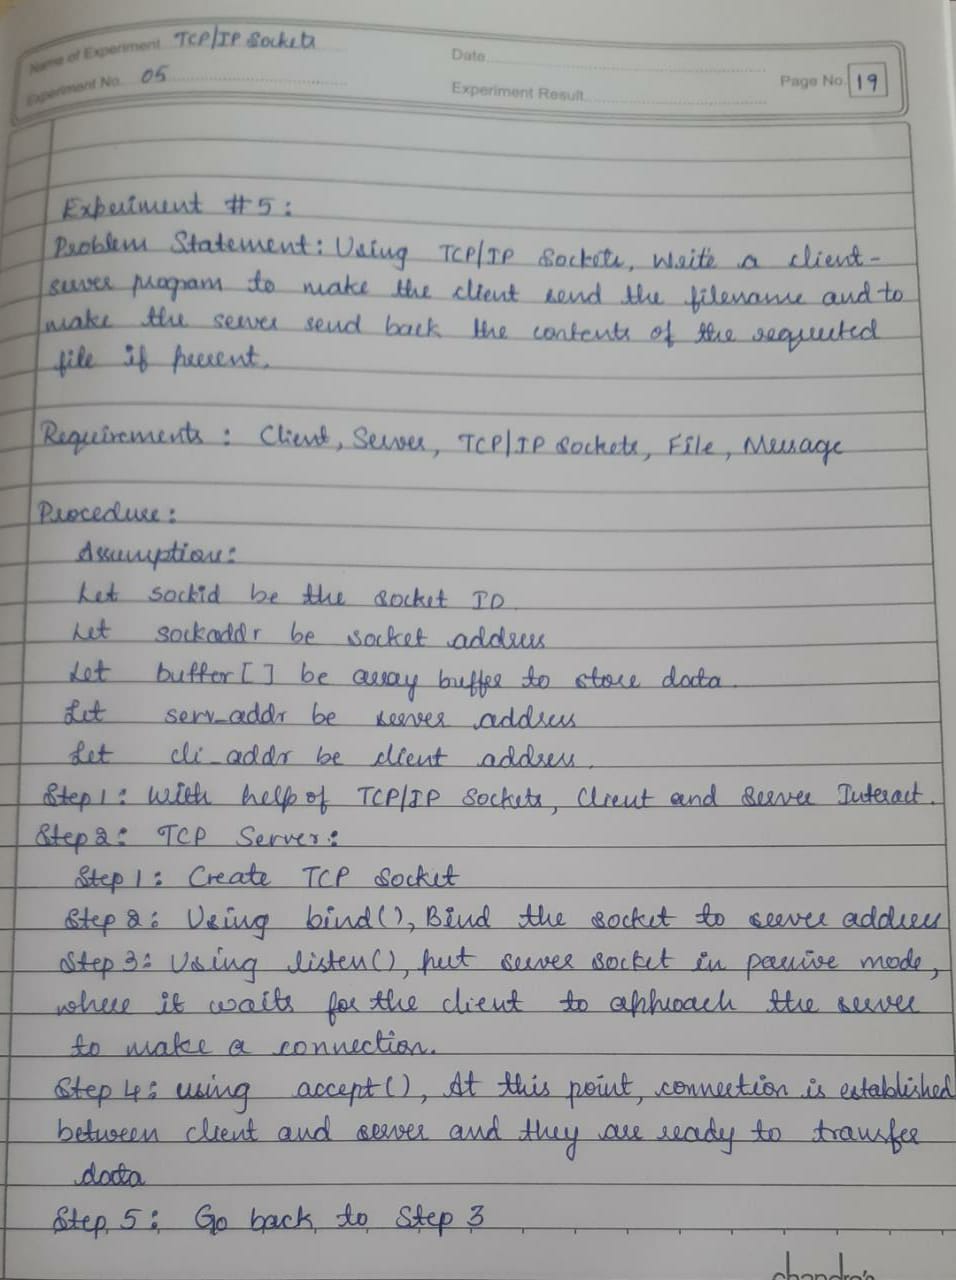 Name of Experiment TCP/IP Sockets
Date
Page No. 19
Experiment No. 05
Experiment Result
Experiment #5:
Problem Statement: Using TCP/IP Sockets, write a client-
server program to make the client send the filename and to
make the server send back the contents of the requested
file if present.
Requirements: Client, Server, TCP/IP Sockets, File, Message
Procedure:
Assumption:
Let sockid be the socket ID
Let sockaddr be socket address
Let buffer[] be array buffer to store data
Let serv_addr be server address
Let cli_addr be client address.
Step 1: With help of TCP/IP Sockets, Client and Server Interact.
Step 2: TCP Server:
Step 1: Create TCP Socket
Step 2: Using bind(), Bind the socket to server address
Step 3: Using listen(), put server socket in passive mode,
where it waits for the client to approach the server
to make a connection.
Step 4: using accept(), At this point, connection is established
between client and server and they are ready to transfer
data
Step 5: Go back to Step 3